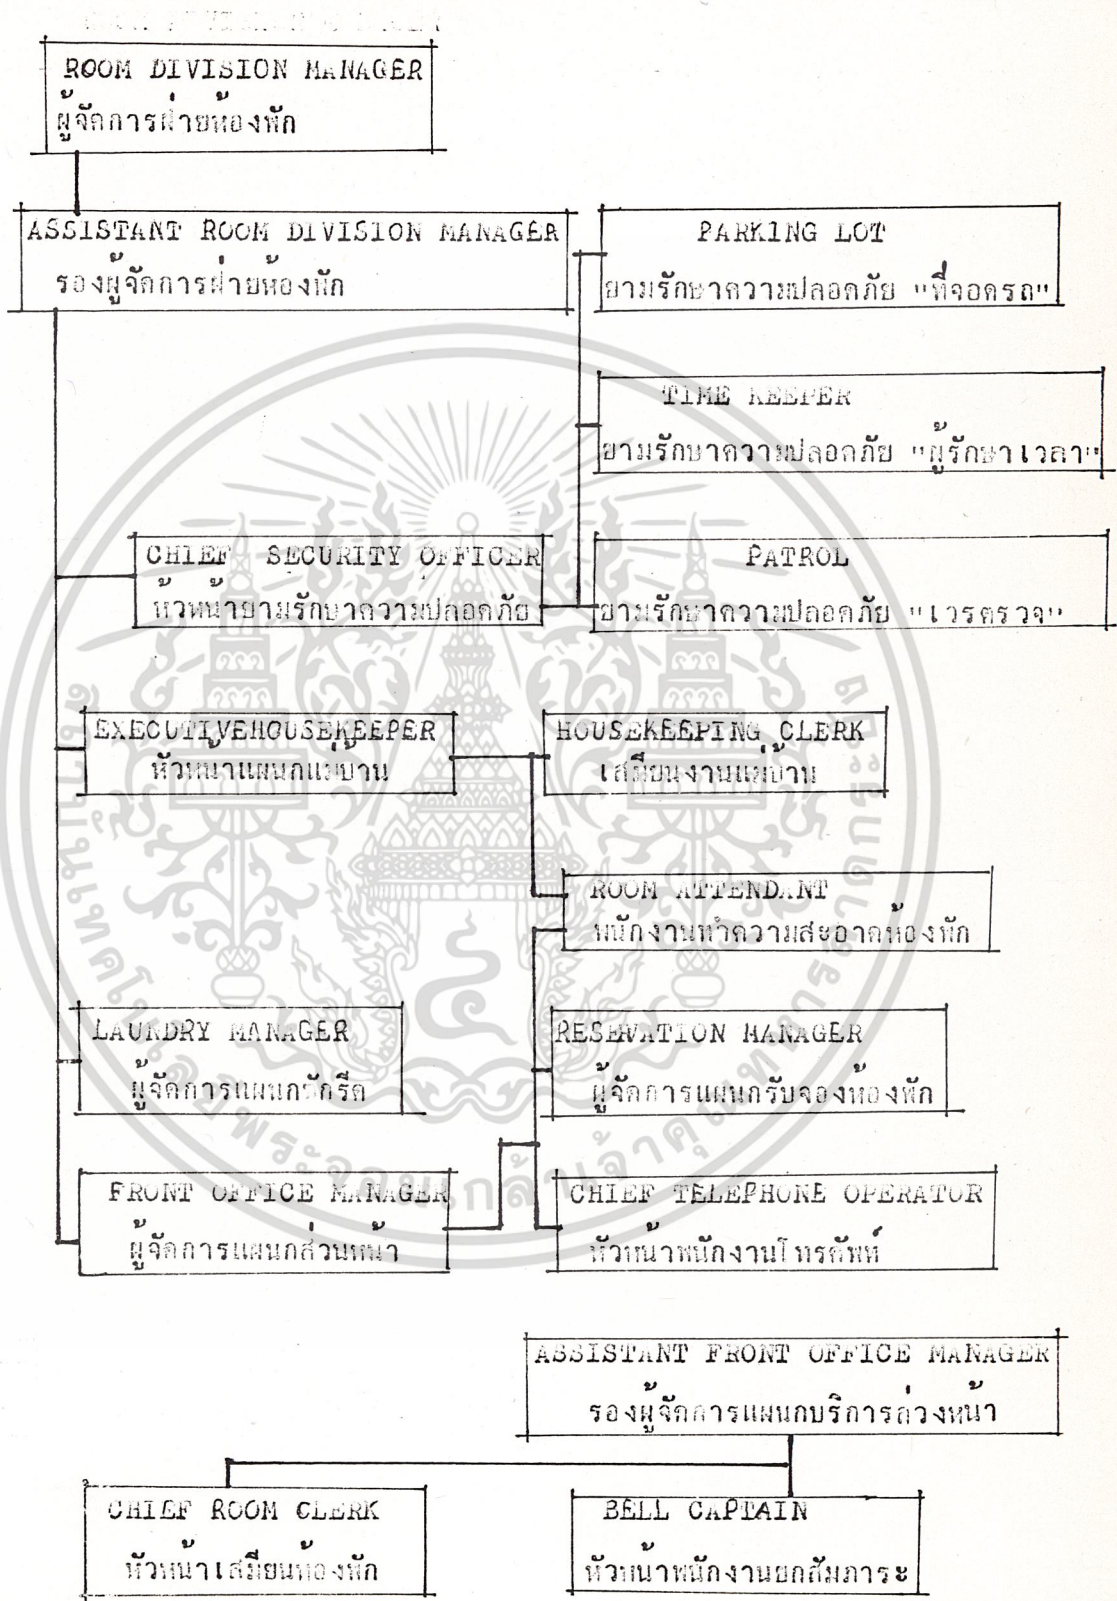 ROOM DIVISION MANAGER
ผู้จัดการฝ่ายห้องพัก
ASSISTANT ROOM DIVISION MANAGER
รองผู้จัดการฝ่ายห้องพัก
PARKING LOT
ยามรักษาความปลอดภัย "ที่จอดรถ"
TIME KEEPER
ยามรักษาความปลอดภัย "ผู้รักษาเวลา"
CHIEF SECURITY OFFICER
หัวหน้ายามรักษาความปลอดภัย
PATROL
ยามรักษาความปลอดภัย "เวรตรวจ"
EXECUTIVEHOUSEKEEPER
หัวหน้าแผนกแม่บ้าน
HOUSEKEEPING CLERK
เสมียนงานแม่บ้าน
ROOM ATTENDANT
พนักงานทำความสะอาดห้องพัก
LAUNDRY MANAGER
ผู้จัดการแผนกซักรีด
RESERVATION MANAGER
ผู้จัดการแผนกรับจองห้องพัก
FRONT OFFICE MANAGER
ผู้จัดการแผนกส่วนหน้า
CHIEF TELEPHONE OPERATOR
หัวหน้าพนักงานโทรศัพท์
ASSISTANT FRONT OFFICE MANAGER
รองผู้จัดการแผนกบริการส่วงหน้า
CHIEF ROOM CLERK
หัวหน้าเสมียนห้องพัก
BELL CAPTAIN
หัวหน้าพนักงานยกสัมภาระ
สถาบันเทคโนโลยีพระจอมเกล้าเจ้าคุณทหารลาดกระบัง